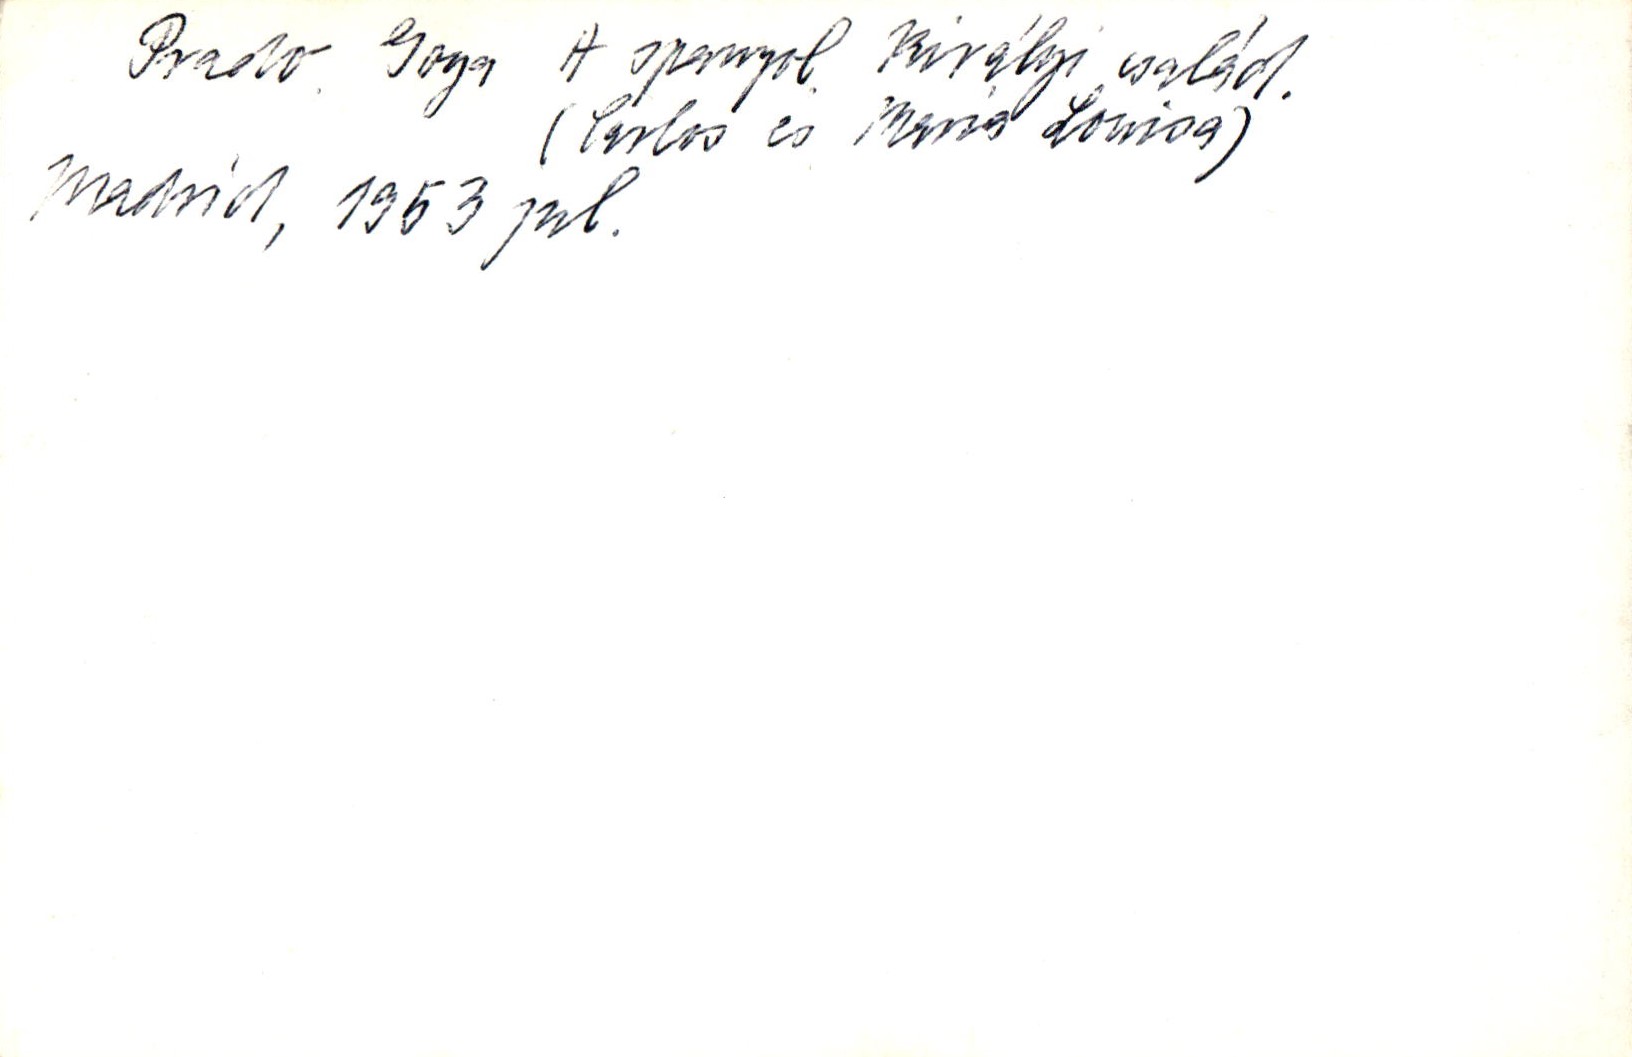 Prado. Goya A spanyol Királyi család.
(Carlos és Mariá Louisa)
Madrid, 1953 jul.